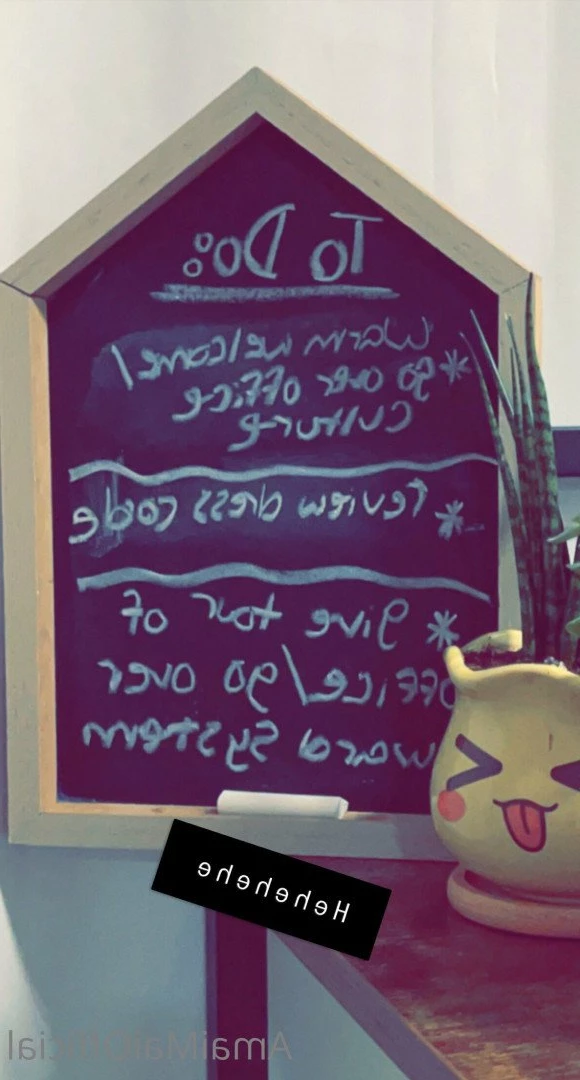 To Do:
Warm welcome/
* go over office
culture
* review dress code
* give tour of
office/go over
system
Hehehehe
AmaiMaiOfficial